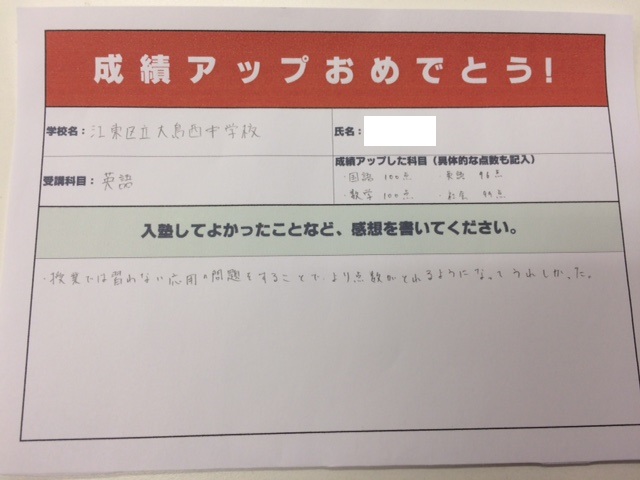 成績アップおめでとう!
学校名：江東区立大島西中学校
氏名：
受講科目：英語
成績アップした科目（具体的な点数も記入）
・国語 100点 ・英語 96点
・数学 100点 ・社会 99点
入塾してよかったことなど、感想を書いてください。
・授業では習わない応用の問題をすることで、より点数がとれるようになってうれしかった。